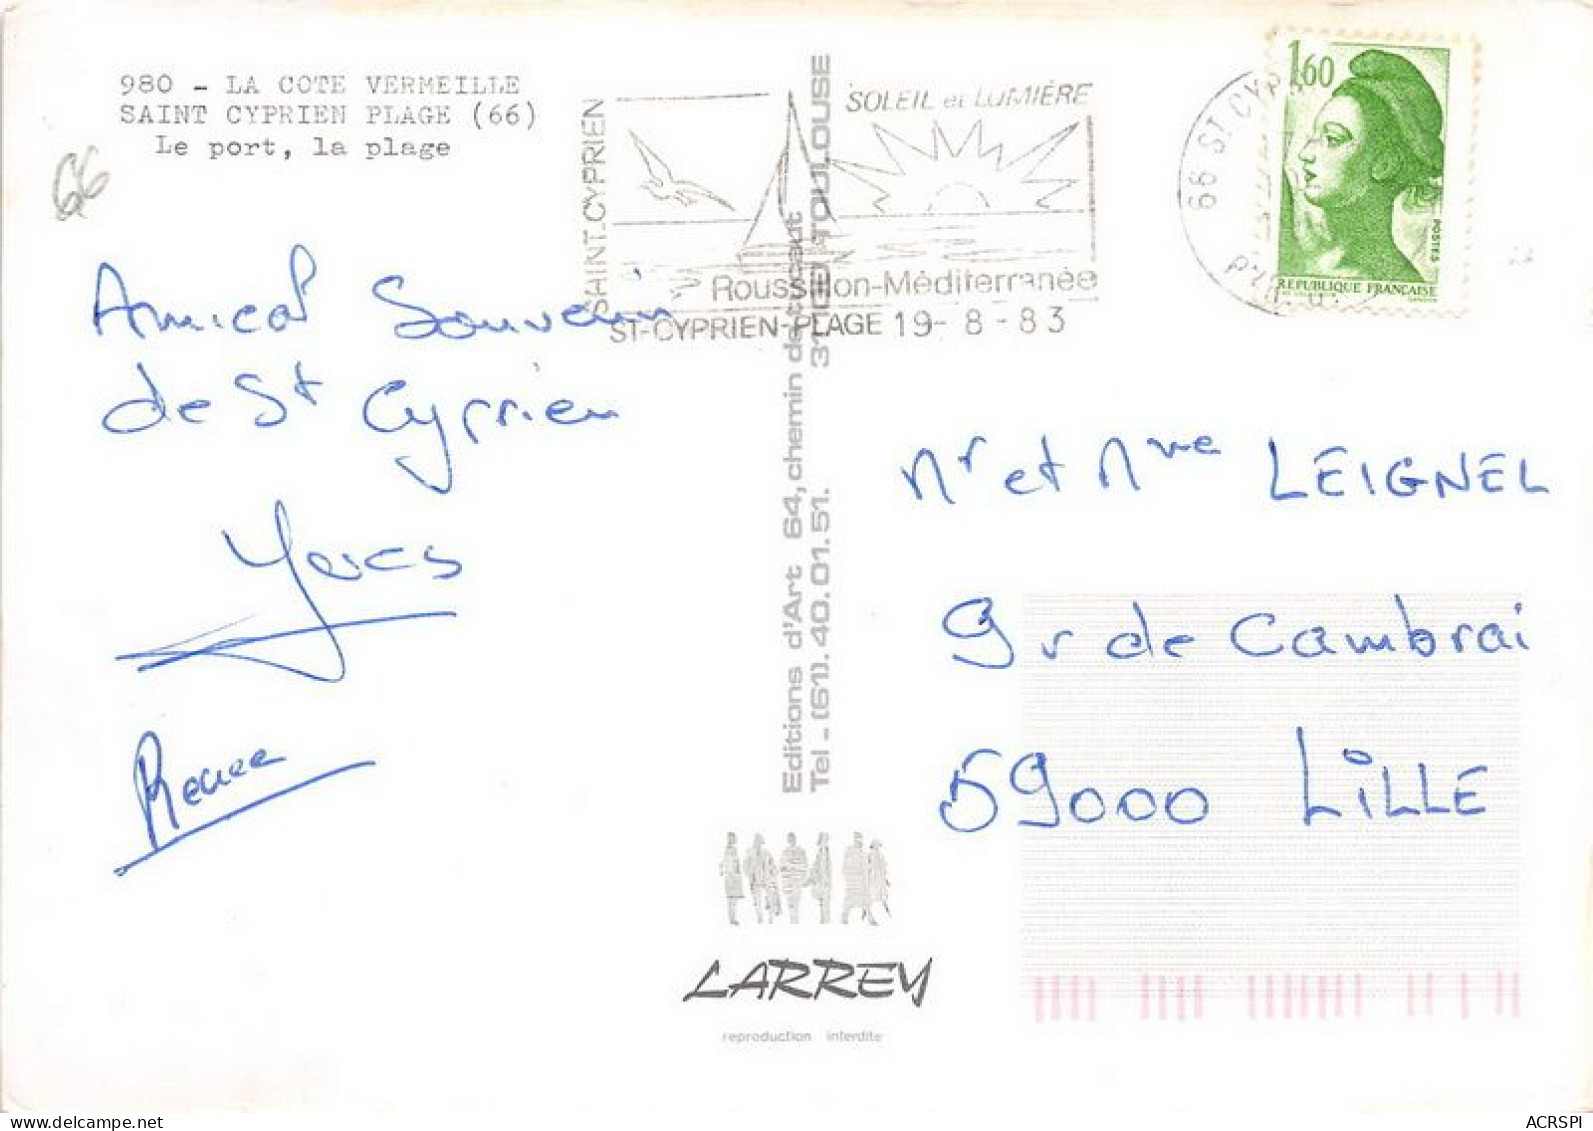 980 - LA COTE VERMEILLE
SAINT CYPRIEN PLAGE (66)
Le port, la plage
66
SAINT-CYPRIEN
SOLEIL et LUMIÈRE
Roussillon-Méditerranée
ST-CYPRIEN-PLAGE 19-8-83
66 ST CYPR
PYR. O.
1,60
POSTES
REPUBLIQUE FRANÇAISE
Amical Souvenir
de St Cyprien
Yves
Renee
Editions d'Art 64, chemin de tucaut
Tel - (61). 40. 01. 51. TOULOUSE
Mr et Mme LEIGNEL
9 r de Cambrai
59000 LILLE
LARREY
reproduction interdite
delcampe.net
ACRSPI